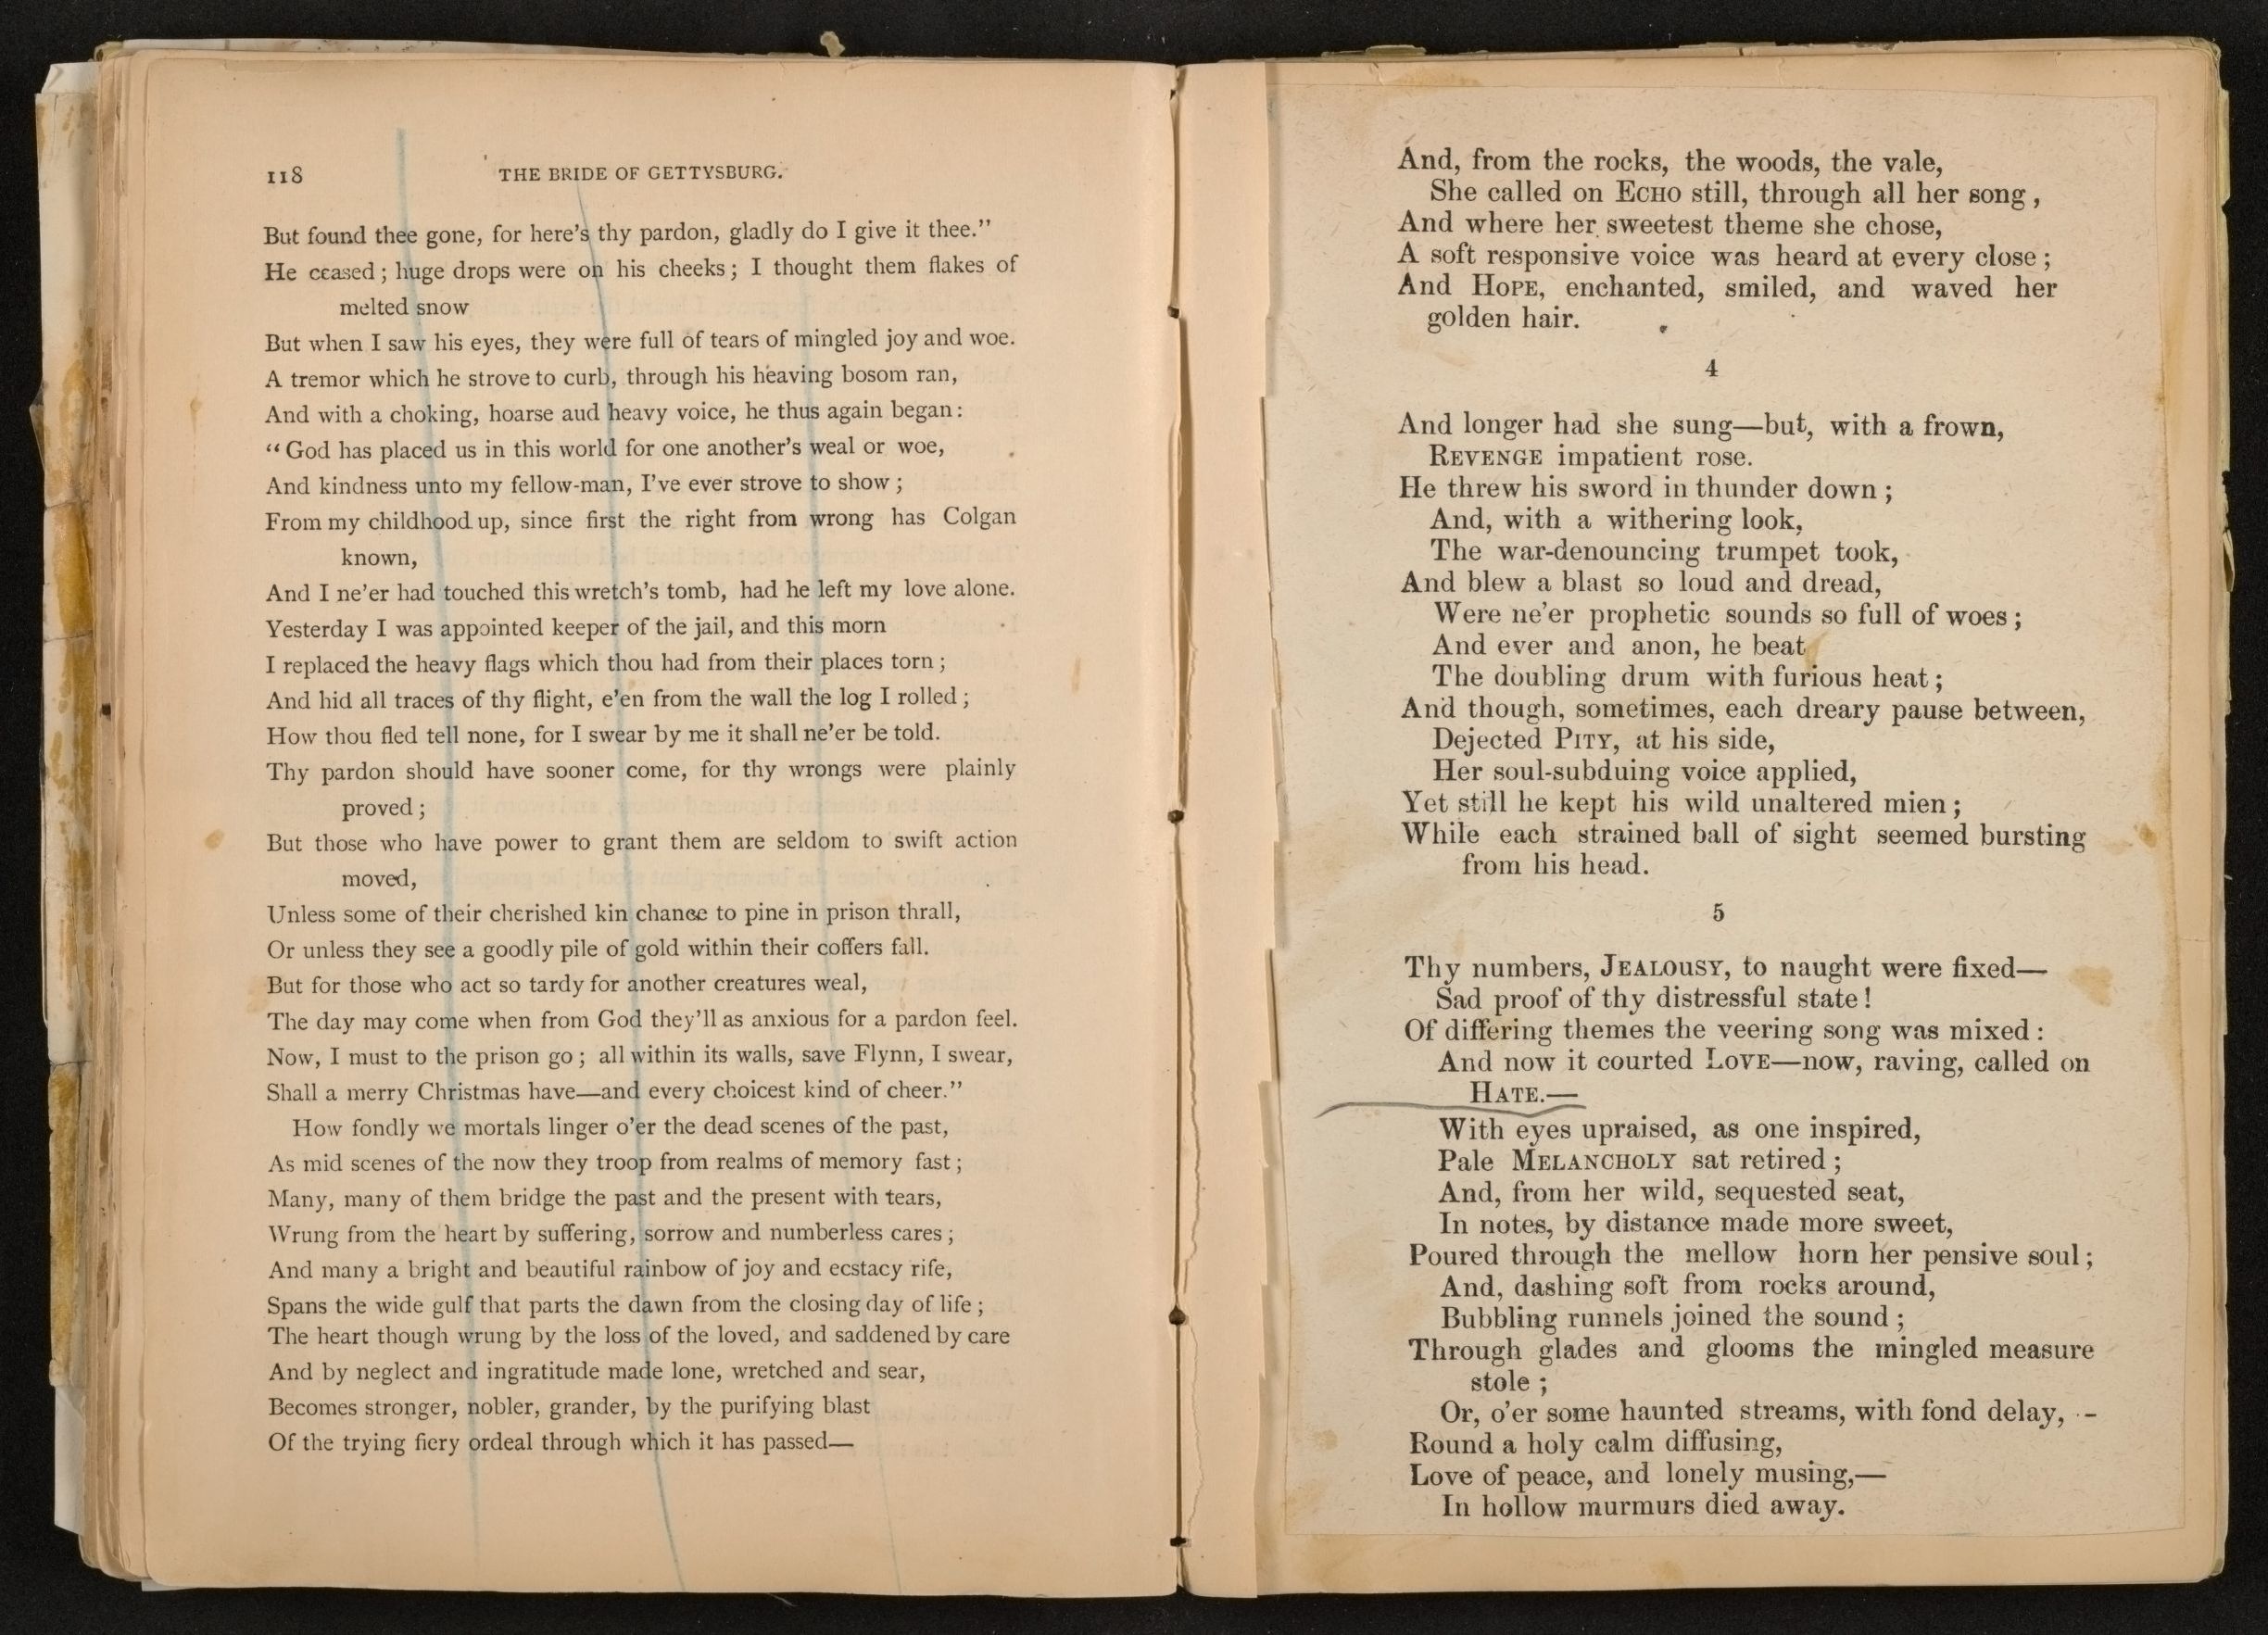 118 THE BRIDE OF GETTYSBURG.
But found thee gone, for here's thy pardon, gladly do I give it thee."
He ceased; huge drops were on his cheeks; I thought them flakes of
melted snow
But when I saw his eyes, they were full of tears of mingled joy and woe.
A tremor which he strove to curb, through his heaving bosom ran,
And with a choking, hoarse aud heavy voice, he thus again began:
"God has placed us in this world for one another's weal or woe,
And kindness unto my fellow-man, I've ever strove to show;
From my childhood up, since first the right from wrong has Colgan
known,
And I ne'er had touched this wretch's tomb, had he left my love alone.
Yesterday I was appointed keeper of the jail, and this morn
I replaced the heavy flags which thou had from their places torn;
And hid all traces of thy flight, e'en from the wall the log I rolled;
How thou fled tell none, for I swear by me it shall ne'er be told.
Thy pardon should have sooner come, for thy wrongs were plainly
proved;
But those who have power to grant them are seldom to swift action
moved,
Unless some of their cherished kin chance to pine in prison thrall,
Or unless they see a goodly pile of gold within their coffers fall.
But for those who act so tardy for another creatures weal,
The day may come when from God they'll as anxious for a pardon feel.
Now, I must to the prison go; all within its walls, save Flynn, I swear,
Shall a merry Christmas have—and every choicest kind of cheer."
How fondly we mortals linger o'er the dead scenes of the past,
As mid scenes of the now they troop from realms of memory fast;
Many, many of them bridge the past and the present with tears,
Wrung from the heart by suffering, sorrow and numberless cares;
And many a bright and beautiful rainbow of joy and ecstacy rife,
Spans the wide gulf that parts the dawn from the closing day of life;
The heart though wrung by the loss of the loved, and saddened by care
And by neglect and ingratitude made lone, wretched and sear,
Becomes stronger, nobler, grander, by the purifying blast
Of the trying fiery ordeal through which it has passed—
And, from the rocks, the woods, the vale,
She called on ECHO still, through all her song,
And where her sweetest theme she chose,
A soft responsive voice was heard at every close;
And HOPE, enchanted, smiled, and waved her
golden hair.
4
And longer had she sung—but, with a frown,
REVENGE impatient rose.
He threw his sword in thunder down;
And, with a withering look,
The war-denouncing trumpet took,
And blew a blast so loud and dread,
Were ne'er prophetic sounds so full of woes;
And ever and anon, he beat
The doubling drum with furious heat;
And though, sometimes, each dreary pause between,
Dejected PITY, at his side,
Her soul-subduing voice applied,
Yet still he kept his wild unaltered mien;
While each strained ball of sight seemed bursting
from his head.
5
Thy numbers, JEALOUSY, to naught were fixed—
Sad proof of thy distressful state!
Of differing themes the veering song was mixed:
And now it courted LOVE—now, raving, called on
HATE.—
With eyes upraised, as one inspired,
Pale MELANCHOLY sat retired;
And, from her wild, sequested seat,
In notes, by distance made more sweet,
Poured through the mellow horn her pensive soul;
And, dashing soft from rocks around,
Bubbling runnels joined the sound;
Through glades and glooms the mingled measure
stole;
Or, o'er some haunted streams, with fond delay, -
Round a holy calm diffusing,
Love of peace, and lonely musing,—
In hollow murmurs died away.